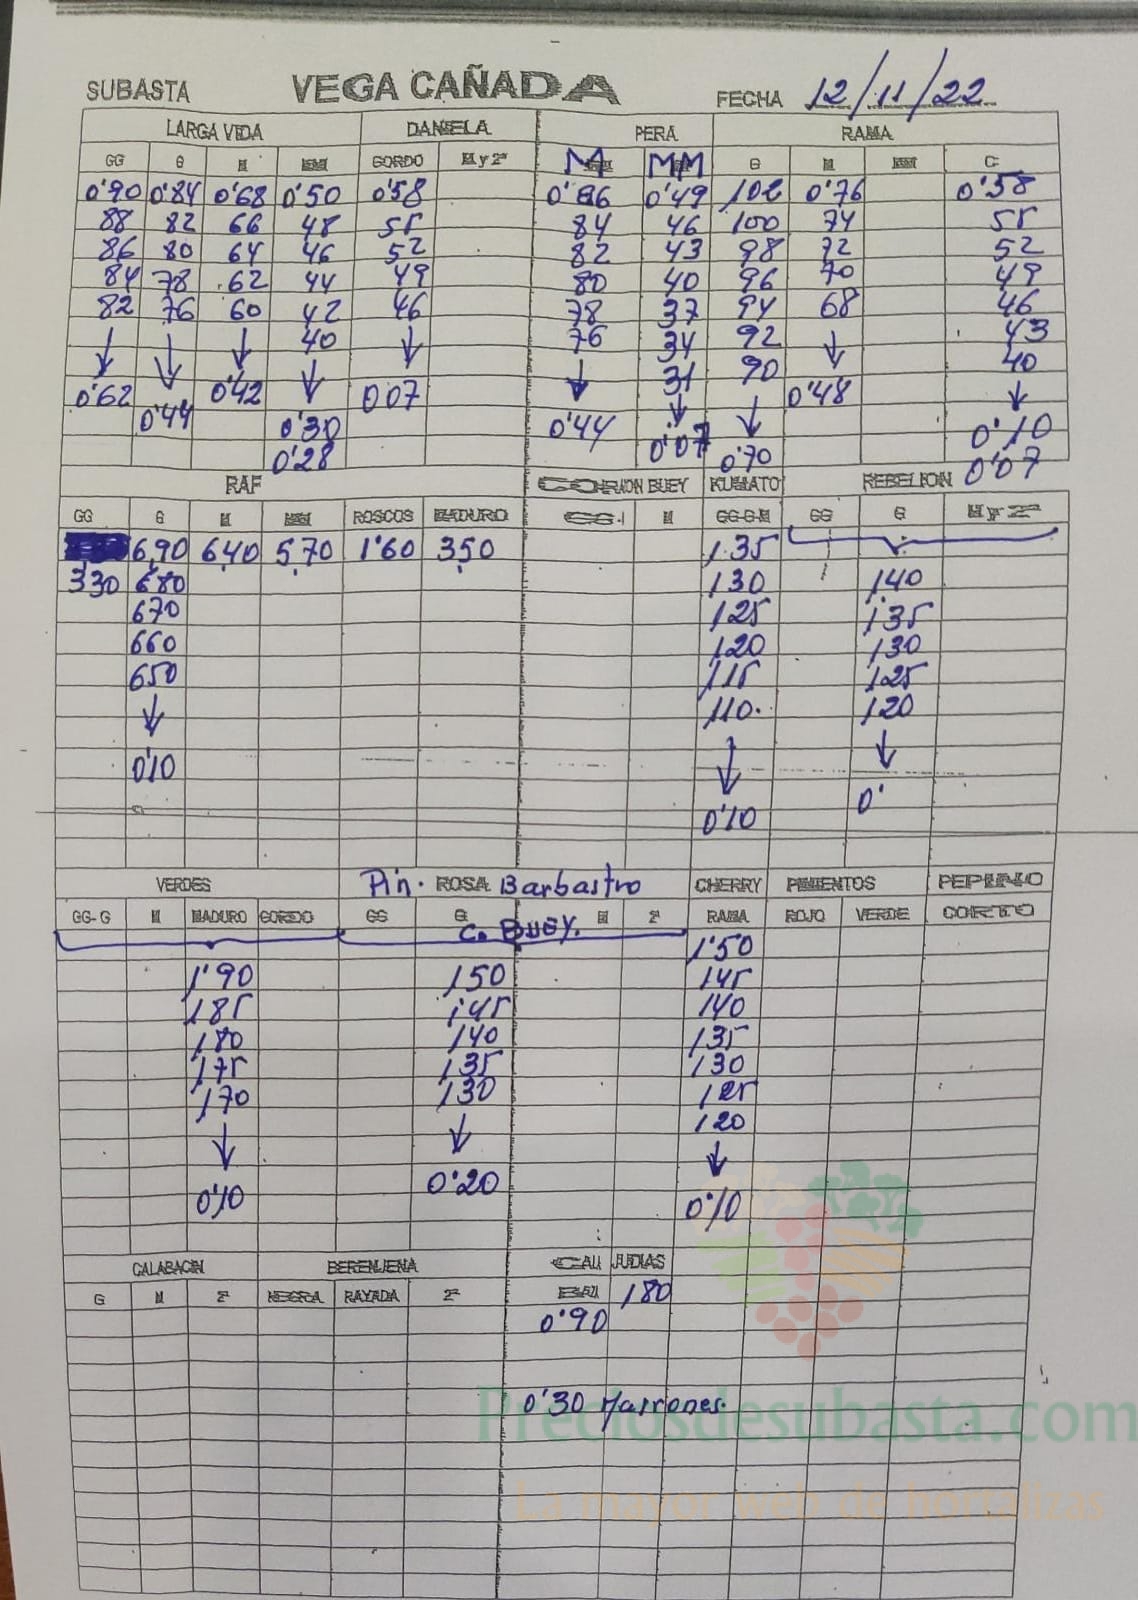 SUBASTA VEGA CAÑADA FECHA 12/11/22
LARGA VIDA DANIELA PERA RAMA
GG G M MM GORDO M y 2ª M MM G M MM C
0'90 0'84 0'68 0'50 0'58 0'86 0'49 102 0'76 0'58
88 82 66 48 55 84 46 100 74 55
86 80 64 46 52 82 43 98 72 52
84 78 62 44 49 80 40 96 70 49
82 76 60 42 46 78 37 94 68 46
40 76 34 92 43
31 90 40
0'62 0'42 007 0'48
0'44 0'30 0'44 0'07 0'70 0'10
0'28 0'07
RAF CORAZON BUEY KUMATO REBELION
GG G M MM ROSCOS MADURO GG M GG-G-M GG G M y 2ª
6,90 640 5,70 1'60 350 1.35
330 680 130 140
670 125 135
660 120 130
650 115 125
110 120
0'10 0'10 0'
VERDES Pin. ROSA Barbastro CHERRY PIMIENTOS PEPINO
GG-G M MADURO GORDO GG G M 2ª RAMA ROJO VERDE CORTO
C. BUEY.
1'50
1'90 150 145
185 145 140
180 140 135
175 135 130
170 130 125
120
0'10 0'20 0'10
CALABACIN BERENJENA CALABAZA JUDIAS
G M 2ª NEGRA RAYADA 2ª 180
0'90
0'30 Marrones.
Preciosdesubasta.com
La mayor web de hortalizas